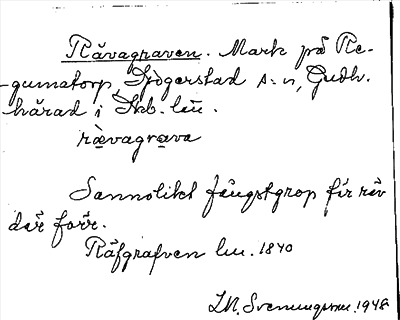 Rävagraven. Mark på Re-
gumatorp, Djögerstad s:n, Gudh.
härad i Skb. län.
rävagrava
Sannolikt fångstgrop för räv
där förr.
Räfgrafven lm. 1840
1948